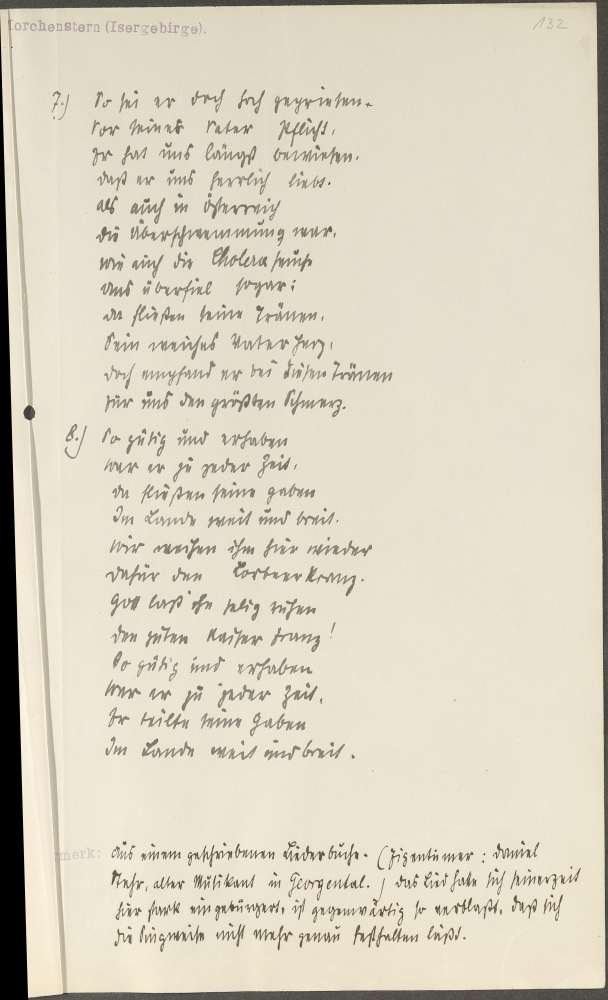 Morchenstern (Isergebirge).
132
7.) So sei er doch hoch gepriesen.
Vor seiner Vater Pflicht,
Er hat uns längst bewiesen.
daß er uns herrlich liebt.
als auch in österreich
die überschwemmung war,
wie auch die Cholera seuche
uns überfiel sogar:
da fließen seine Tränen,
Sein weiches Vater Herz,
doch empfand er bei diesen Tränen
für uns den größten Schmerz.
8.) So gütig und erhaben
war er zu jeder Zeit,
da fließen seine gaben
Im Lande weit und breit.
wir weihen ihm hier wieder
dafür den Lorbeer Kranz.
Gott laß ihn selig ruhen
den guten Kaiser Franz!
So gütig und erhaben
War er zu jeder Zeit,
Er teilte seine Gaben
Im Lande weit und breit.
merk: aus einem geschriebenen Liederbuche. (Eigentümer: Daniel
Stehr, alter Musikant in Georgental.) das Lied habe sich seinerzeit
hier stark eingebürgert, ist gegenwärtig so verblaßt, daß sich
die Singweise nicht mehr genau festhalten läßt.